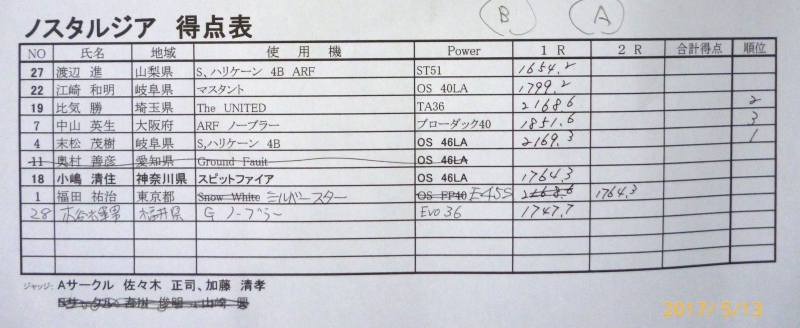 B A
ノスタルジア 得点表
NO 氏名 地域 使用機 Power 1R 2R 合計得点 順位
27 渡辺 進 山梨県 S、ハリケーン 4B ARF ST51 1654.2
22 江崎 和明 岐阜県 マスタント OS 40LA 1799.2
19 比気 勝 埼玉県 The UNITED TA36 2168.6 2
7 中山 英生 大阪府 ARF ノーブラー ブローダック40 1851.6 3
4 末松 茂樹 岐阜県 S,ハリケーン 4B OS 46LA 2169.3 1
11 奥村 善彦 愛知県 Ground Fault OS 46LA
18 小嶋 清住 神奈川県 スピットファイア OS 46LA 1764.3
1 福田 祐治 東京都 Snow White シルバースター OS FP40 E455 2168.6 1764.3
28 福井県 G ノーブラー Evo 36 1747.7
ジャッジ: Aサークル 佐々木 正司、加藤 清孝
Bサークル 山崎
2017/5/13